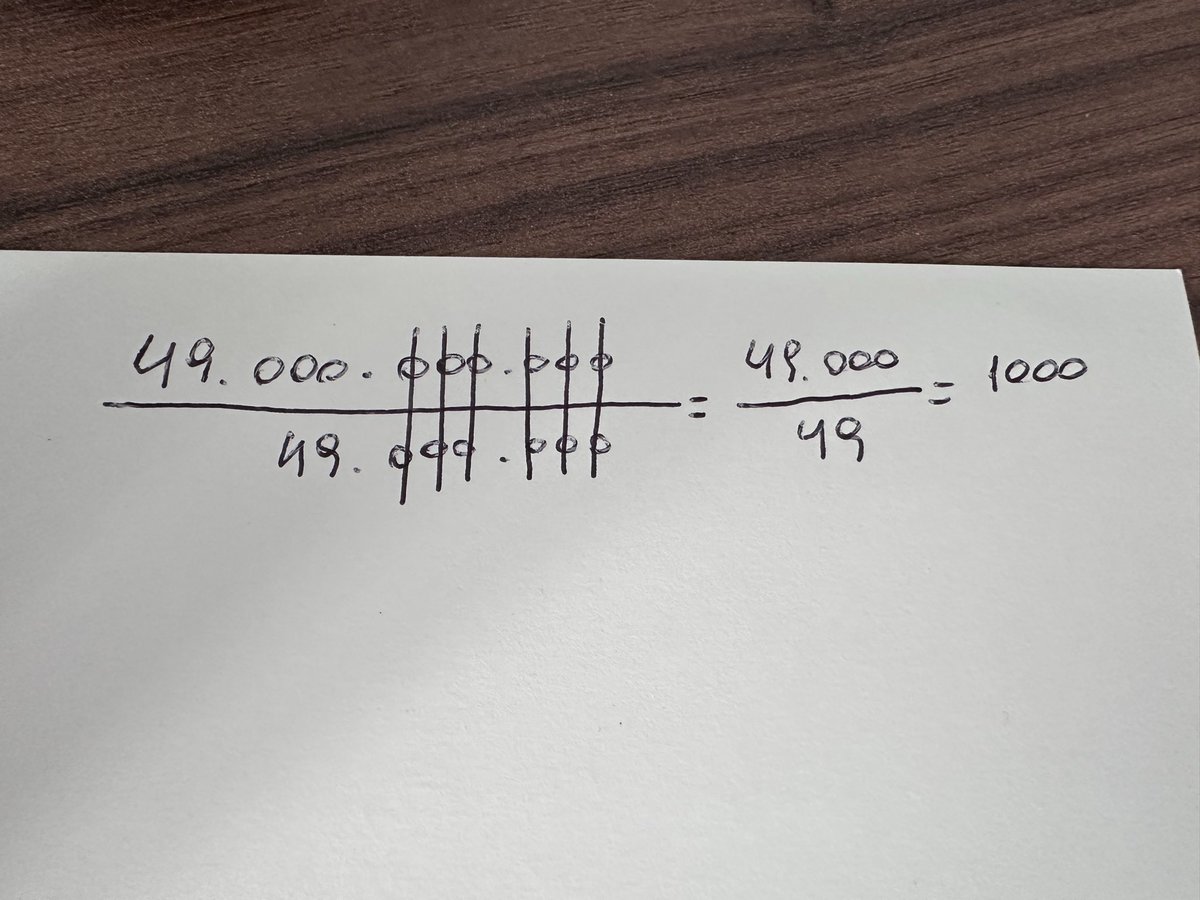 49.000.000.000 / 49.000.000 = 49.000 / 49 = 1000